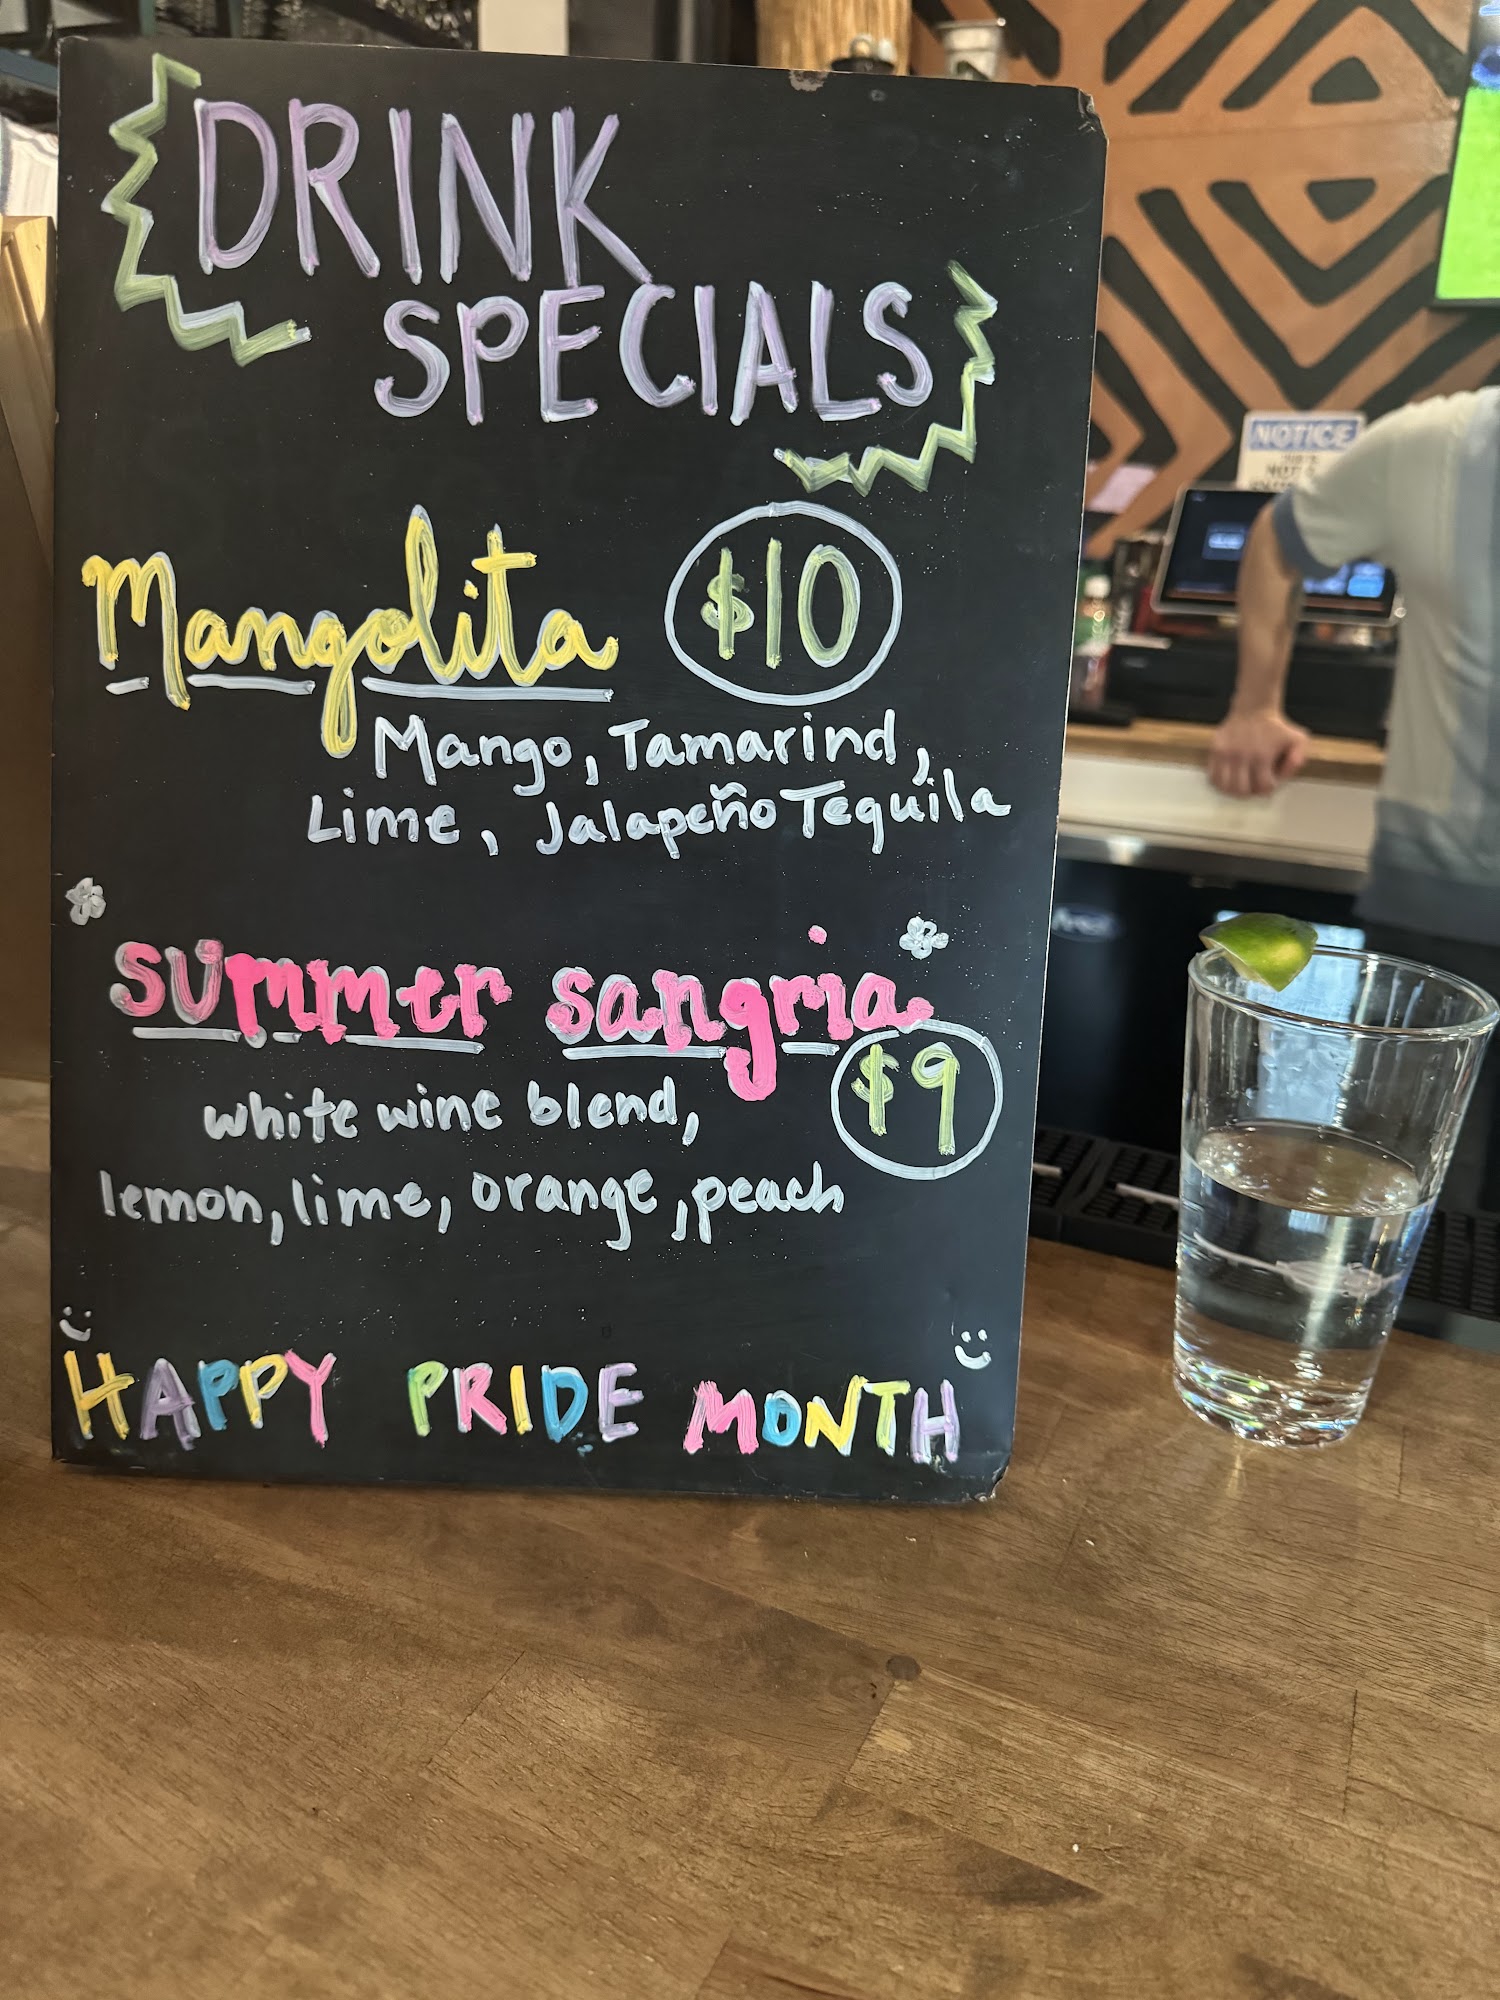 DRINK
SPECIALS
Mangolita $10
Mango, Tamarind,
Lime, Jalapeño Tequila
summer sangria
$9
white wine blend,
lemon, lime, orange, peach
HAPPY PRIDE MONTH
NOTICE